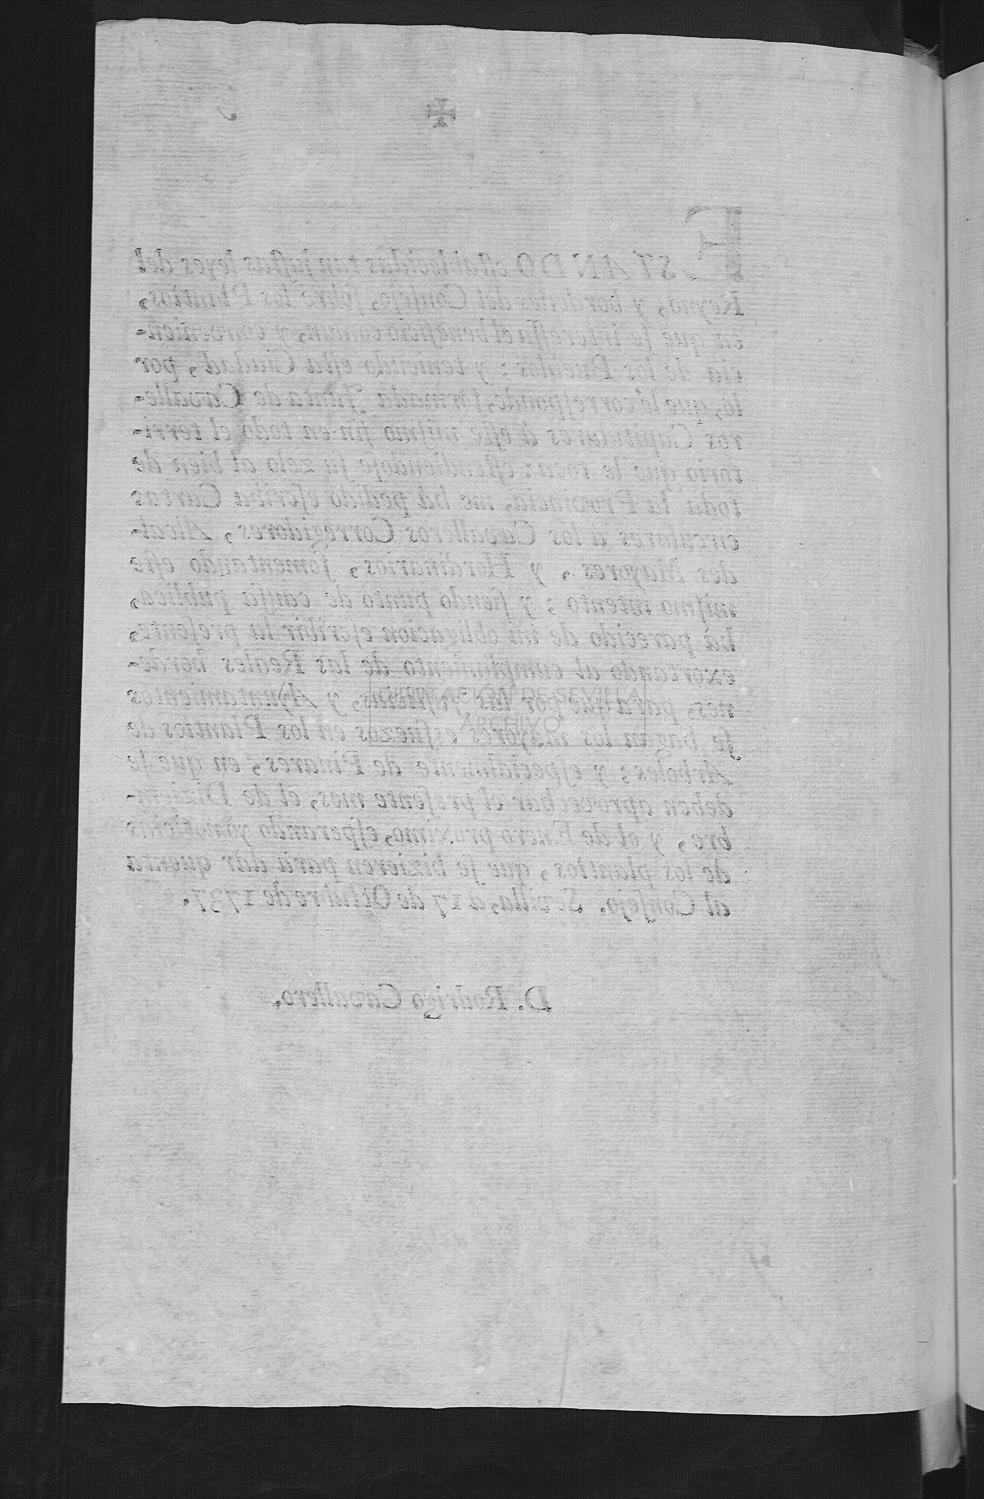 ✠
ESTANDO establecidas tan justas leyes del
Reyno, y hordenes del Consejo, sobre los Plantios,
en que se interessa el beneficio comun, y convenien-
cia de los Pueblos: y teniendo esta Ciudad, por
lo que le corresponde, formada Junta de Cavalle-
ros Capitulares à este mismo fin en todo el terri-
torio que le toca: estendiendose su zelo al bien de
toda la Provincia, me hà pedido escriba Cartas
circulares à los Cavalleros Corregidores, Alcal-
des Mayores, y Hordinarios, fomentando este
mismo intento; y siendo punto de causa publica,
hà parecido de mi obligacion escribir la presente,
exortando al cumplimiento de las Reales horde-
nes, para que por las Justicias, y Ayuntamientos
se hagan los mayores esfuezos en los Plantios de
Arboles; y especialmente de Pinares, en que se
deben aprovechar el presente mes, el de Diziem-
bre, y el de Enero proximo, esperando yo noticias
de los plantios, que se hizieren para dàr quenta
al Consejo. Sevilla, a 17 de Octubre de 1737.
D. Rodrigo Cavallero.
DIPUTACION DE SEVILLA
ARCHIVO